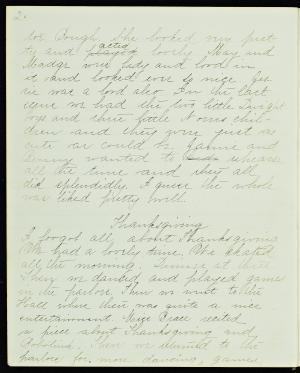 2.
for Cough. She looked very pret-
ty and played acted lovely. May and
Madge were lady and lord in
it and looked ever so nice. Jes-
sie was a lord also. In the last
scene we had the two little
boys and three little Norris chil-
dren and they were just as
cute as could be. Jamie and
wanted to rehearse
all the time and they all
did splendidly. I guess the whole
was liked pretty well.
Thanksgiving
I forgot all about Thanksgiving
We had a lovely time. We skated
all the morning. Dinner at three
Then we danced and played games
in the parlor. Then we went to the
Hall where there was quite a nice
entertainment. Miss Peace recited
a piece about Thanksgiving and
Then we returned to the
parlor for more dancing, games